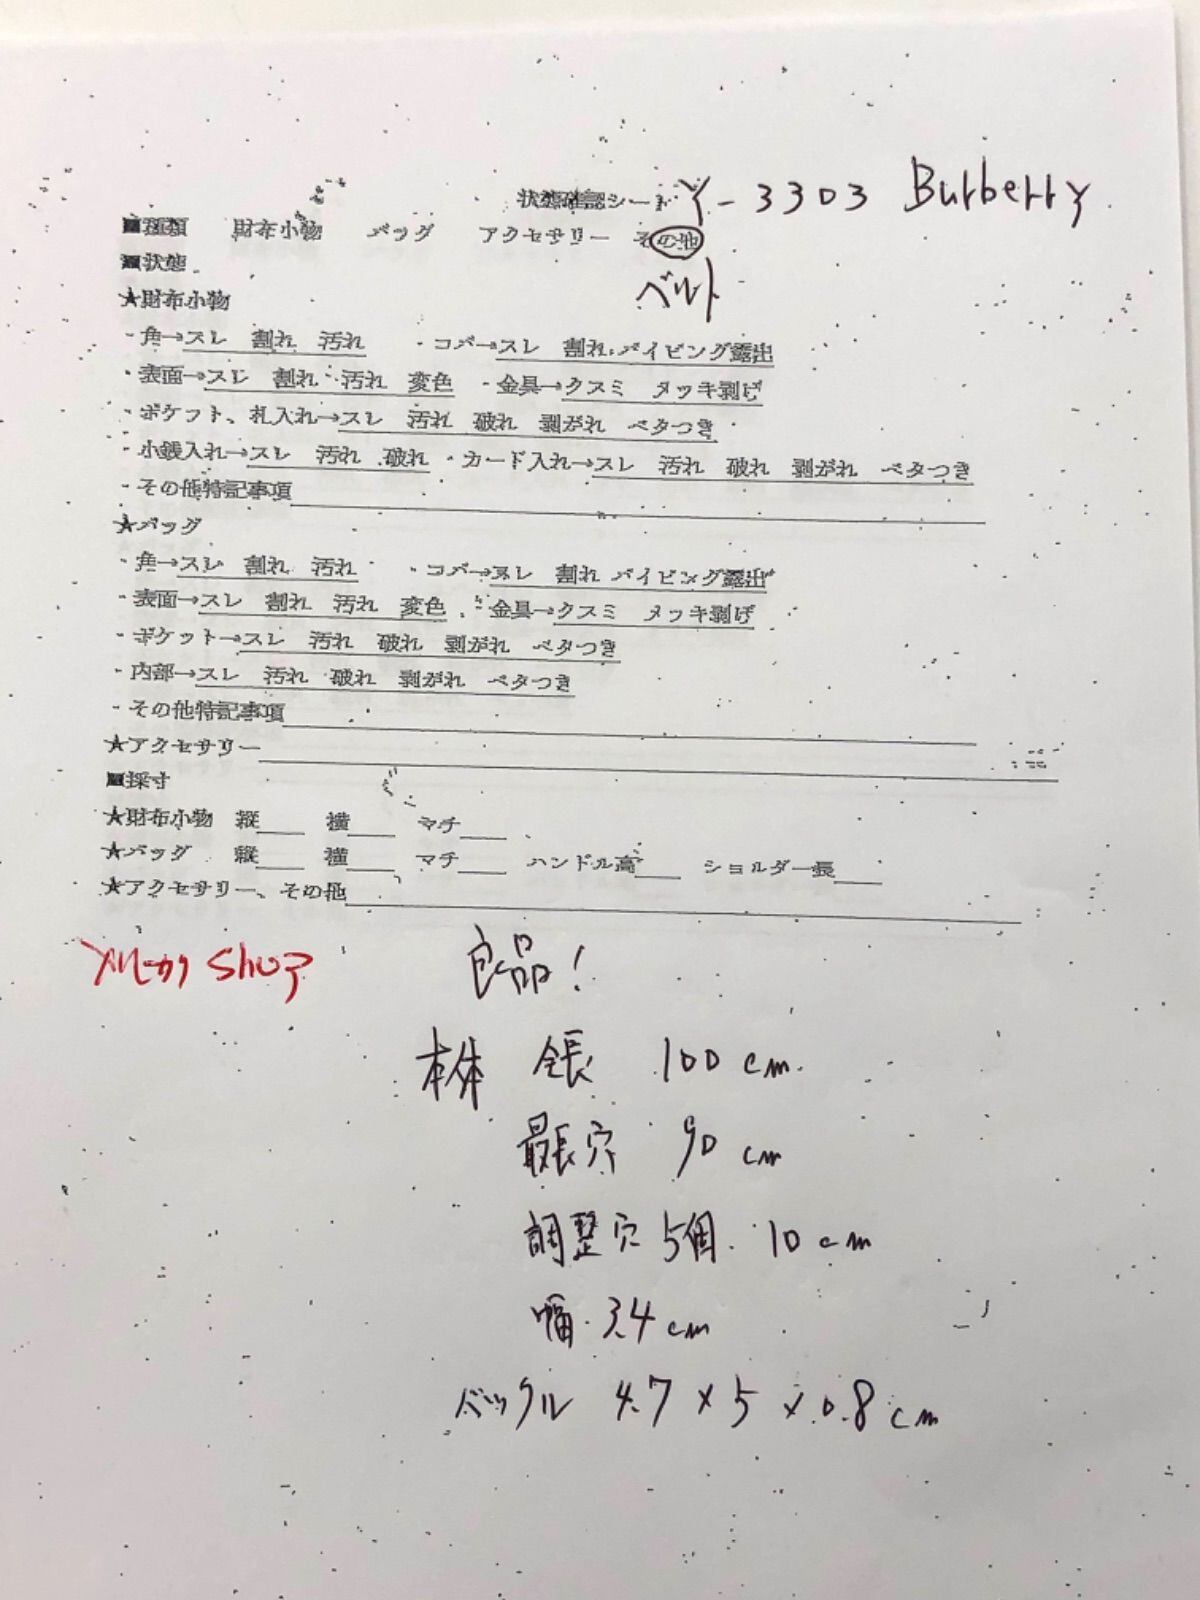 状態確認シート Y-3303 Burberry
■種類 財布小物 バッグ アクセサリー その他
ベルト
■状態
★財布小物
・角→スレ 割れ 汚れ ・コバ→スレ 割れ パイピング露出
・表面→スレ 割れ 汚れ 変色 ・金具→クスミ メッキ剥げ
・ポケット、札入れ→スレ 汚れ 破れ 剥がれ ベタつき
・小銭入れ→スレ 汚れ 破れ ・カード入れ→スレ 汚れ 破れ 剥がれ ベタつき
・その他特記事項
★バッグ
・角→スレ 割れ 汚れ ・コバ→スレ 割れ パイピング露出
・表面→スレ 割れ 汚れ 変色 ・金具→クスミ メッキ剥げ
・ポケット→スレ 汚れ 破れ 剥がれ ベタつき
・内部→スレ 汚れ 破れ 剥がれ ベタつき
・その他特記事項
★アクセサリー
■採寸
★財布小物 縦 横 マチ
★バッグ 縦 横 マチ ハンドル高 ショルダー長
★アクセサリー、その他
shop 良品!
本体 全長 100cm
最長穴 90cm
調整穴 5個 10cm
幅 3.4cm
バックル 4.7×5×0.8cm